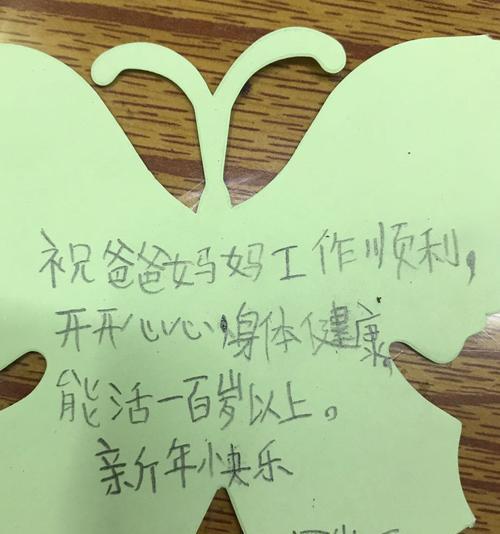 祝爸爸妈妈工作顺利，
开开心心，身体健康。
能活一百岁以上。
新年快乐